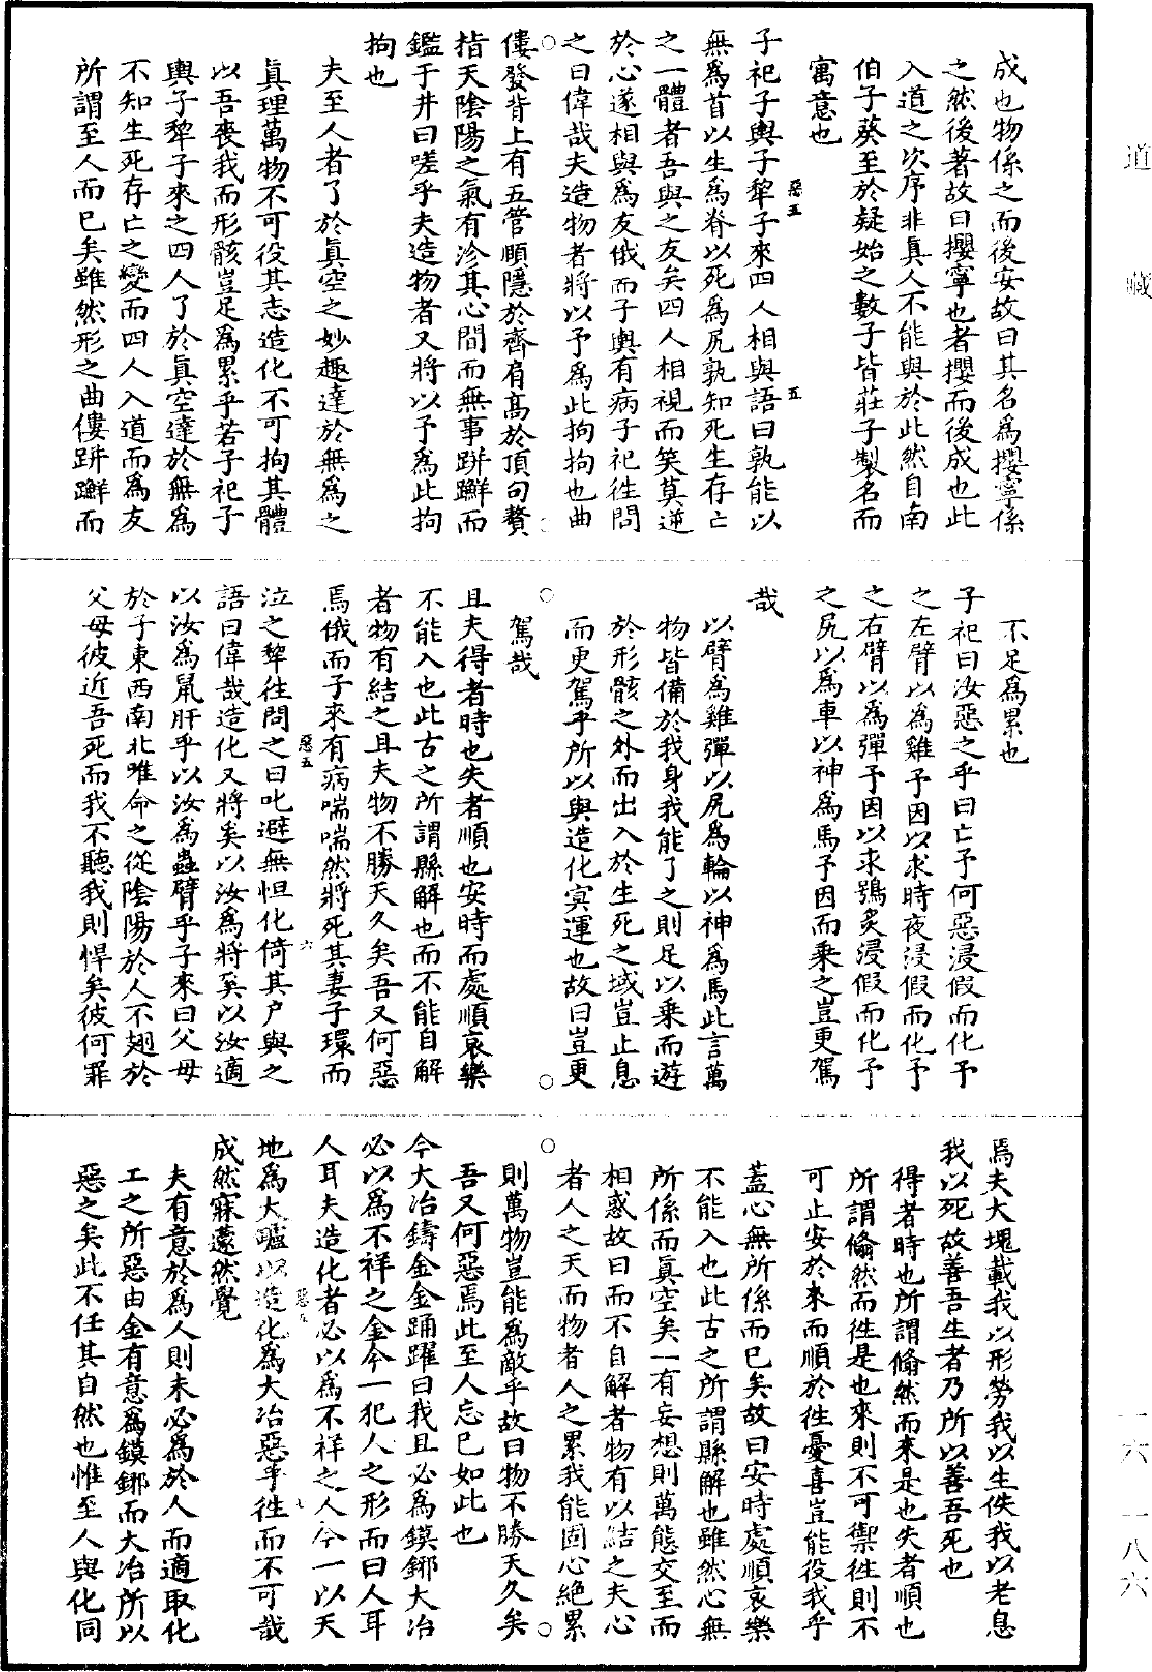 道藏
成也物係之而後安故曰其名為攖寧係
之然後著故曰攖寧也者攖而後成也此
入道之次序非真人不能與於此然自南
伯子葵至於疑始之數子皆莊子製名而
寓意也
惡五
五
子祀子輿子犂子來四人相與語曰孰能以
無為首以生為脊以死為尻孰知死生存亡
之一體者吾與之友矣四人相視而笑莫逆
於心遂相與為友俄而子輿有病子祀往問
之曰偉哉夫造物者將以予為此拘拘也曲
僂發背上有五管頤隱於齊肩高於頂句贅
指天陰陽之氣有沴其心間而無事跰䠟而
鑑于井曰嗟乎夫造物者又將以予為此拘
拘也
夫至人者了於真空之妙趣達於無為之
真理萬物不可役其志造化不可拘其體
以吾喪我而形骸豈足為累乎若子祀子
輿子犂子來之四人了於真空達於無為
不知生死存亡之變而四人入道而為友
所謂至人而已矣雖然形之曲僂跰䠟而
不足為累也
子祀曰汝惡之乎曰亡予何惡浸假而化予
之左臂以為雞予因以求時夜浸假而化予
之右臂以為彈予因以求鴞炙浸假而化予
之尻以為車以神為馬予因而乘之豈更駕
哉
以臂為雞彈以尻為輪以神為馬此言萬
物皆備於我身我能了之則足以乘而遊
於形骸之外而出入於生死之域豈止息
而更駕乎所以與造化冥運也故曰豈更
駕哉
且夫得者時也失者順也安時而處順哀樂
不能入也此古之所謂縣解也而不能自解
者物有結之且夫物不勝天久矣吾又何惡
焉俄而子來有病喘喘然將死其妻子環而
惡五
六
泣之犂往問之曰叱避無怛化倚其户與之
語曰偉哉造化又將奚以汝為將奚以汝適
以汝為鼠肝乎以汝為蟲臂乎子來曰父母
於子東西南北唯命之從陰陽於人不翅於
父母彼近吾死而我不聽我則悍矣彼何罪
焉夫大塊載我以形勞我以生佚我以老息
我以死故善吾生者乃所以善吾死也
得者時也所謂翛然而來是也失者順也
所謂翛然而往是也來則不可禦往則不
可止安於來而順於往憂喜豈能役我乎
蓋心無所係而已矣故曰安時處順哀樂
不能入也此古之所謂縣解也雖然心無
所係而真空矣一有妄想則萬態交至而
相惑故曰而不自解者物有以結之夫心
者人之天而物者人之累我能固心絶累
則萬物豈能為敵乎故曰物不勝天久矣
吾又何惡焉此至人忘已如此也
今大冶鑄金金踊躍曰我且必為鏌鋣大冶
必以為不祥之金今一犯人之形而曰人耳
人耳夫造化者必以為不祥之人今一以天
惡五
七
地為大罏以造化為大冶惡乎往而不可哉
成然寐蘧然覺
夫有意於為人則未必為於人而適取化
工之所惡由金有意為鏌鋣而大冶所以
惡之矣此不任其自然也惟至人與化同
一六一八六